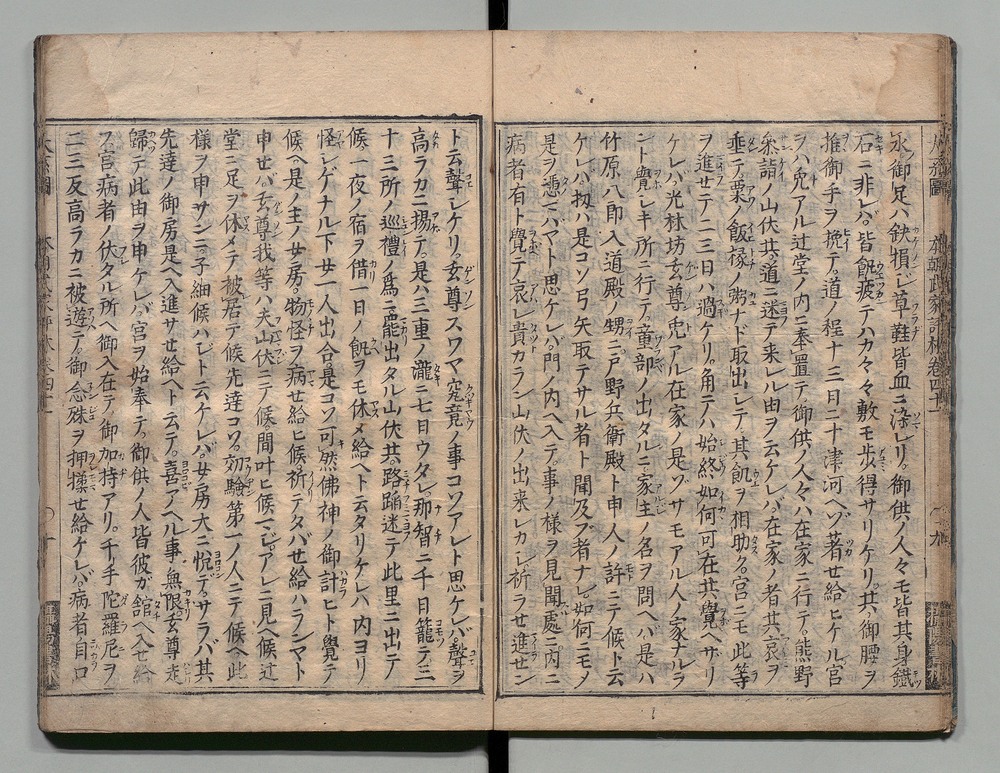 永御足ハ鈌損シ草鞋皆血ニ染レリ。御供ノ人々モ皆其身鐵
石ニ非レバ皆飢疲テハカ々々敷モ歩得サリケリ。共御腰ヲ
推御手ヲ挽テ。道ノ程十三日ニ十津河ヘゾ著セ給ヒケル宮
ヲハ兎アル辻堂ノ内ニ奉置テ御供ノ人々ハ在家ニ行テ。熊野
参詣ノ山伏共。道ニ迷テ来レル由ヲ云ケレバ在家ノ者共哀ヲ
垂テ。粟ノ飯橡ノ粥ナド取出シテ其飢ヲ相助ク。宮ニモ此等
ヲ進セテ二三日ハ過ケリ。角テハ始終如何可在共覺ヘザリ
ケレバ光林坊玄尊兎アル在家ノ是ゾサモアル人ノ家ナルラ
ント覺シキ所ニ行テ。童部ノ出タルニ家主ノ名ヲ問ヘバ是ハ
竹原八郎入道殿ノ甥ニ。戸野兵衛殿ト申人ノ許ニテ候ト云
ケレハ扨ハ是コソ弓矢取テサル者ト聞及ブ者ナレ。如何ニモメ
是ヲ憑マハヤト思ケレバ。門ノ内ヘ入テ。事ノ様ヲ見聞處ニ内ニ
病者有ト覺テ哀レ貴カラン山伏ノ出来レカシ祈ラセ進セン
ト云聲シケリ。玄尊スワヤ究竟ノ事コソアレト思ケレバ。聲ヲ
高ラカニ揚テ。是ハ三重ノ瀧ニ七日ウタレ。那智ニ千日籠テ三
十三所ノ巡禮ノ爲ニ罷出タル山伏共。路蹈迷テ此里ニ出テ
候一夜ノ宿ヲ借一日ノ飢ヲモ休メ給ヘト云タリケレハ内ヨリ
怪シゲナル下女一人出合是コソ可然佛神ノ御計ヒト覺テ
候ヘ是ノ主ノ女房。物怪ヲ病セ給ヒ候祈テタバセ給ハランマト
申セバ。玄尊我等ハ夫山伏ニテ候。間叶ヒ候マジ。アレニ見ヘ候辻
堂ニ足ヲ休メテ被居テ候先達コソ。効験第一ノ人ニテ候ヘ此
様ヲ申サンニ。子細候ハジト云ケレバ。女房大ニ悦テ。サラバ其
先達ノ御房是ヘ入進サセ給ヘト云テ。喜アヘル事無限。玄尊走
歸テ此由ヲ申ケレバ。宮ヲ始奉テ。御供ノ人皆彼ガ館ヘ入セ給
フ宮病者ノ伏タル所ヘ御入在テ。御加持アリ。千手陀羅尼ヲ
二三反高ラカニ被遊テ。御念殊ヲ押揉セ給ケレバ。病者自口